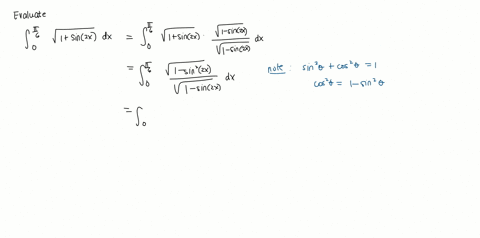 Evaluate
∫₀^{π/6} √(1 + sin(2x)) dx = ∫₀^{π/6} √(1+sin(2x)) · √(1-sin(2x)) / √(1-sin(2x)) dx
= ∫₀^{π/6} √(1-sin²(2x)) / √(1-sin(2x)) dx note: sin²θ + cos²θ = 1
cos²θ = 1-sin²θ
= ∫₀